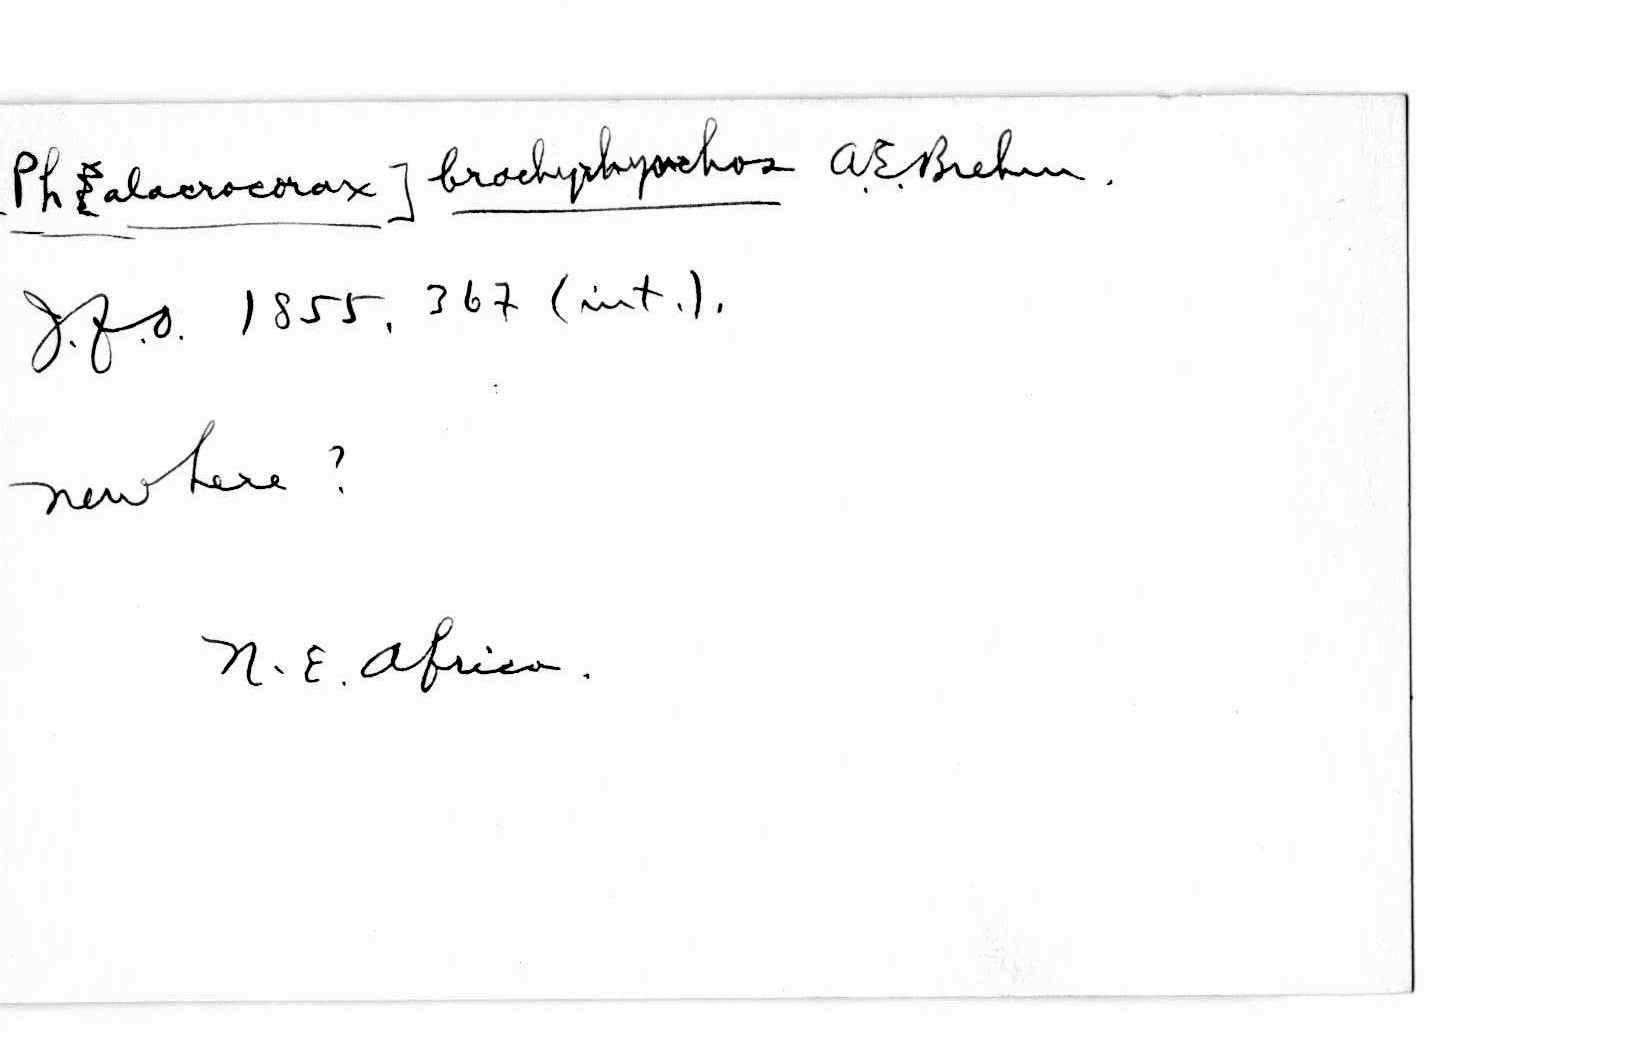 Ph[alacrocorax] brachyrhynchos A.E. Brehm.
J.f.O. 1855, 367 (int.).
new here?
N.E. Africa.